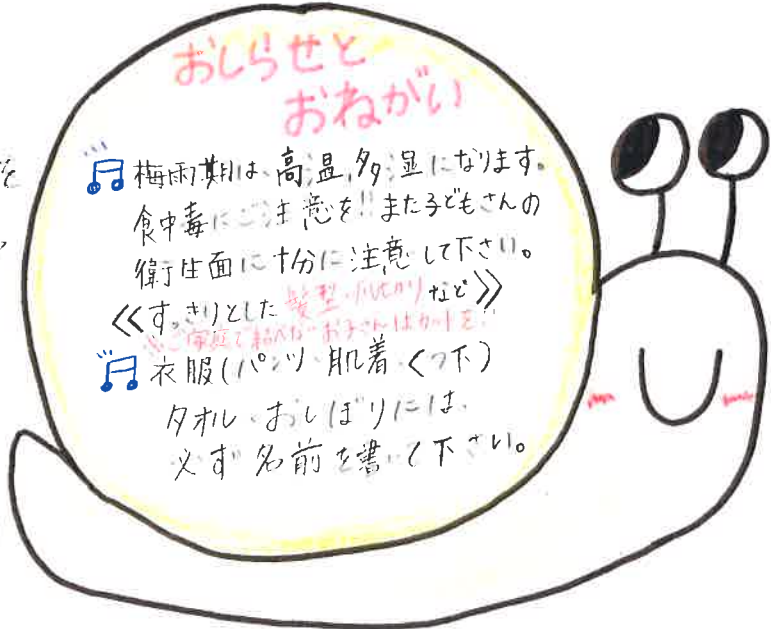 おしらせと
おねがい
梅雨期は、高温、多湿になります。
食中毒にご注意を!! また子どもさんの
衛生面に十分に注意して下さい。
≪すっきりとした髪型・爪 など≫
※ご家庭で お子さんはカットを!!
衣服(パンツ、肌着、くつ下)
タオル、おしぼりには、
必ず名前を書いて下さい。
を